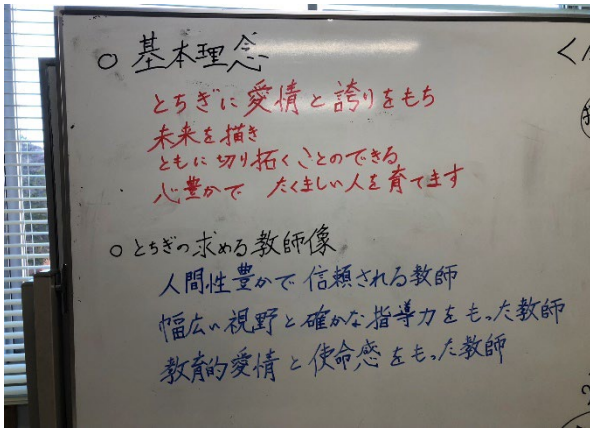 ○ 基本理念
とちぎに愛情と誇りをもち
未来を描き
ともに切り拓くことのできる
心豊かで たくましい人を育てます
○ とちぎの求める教師像
人間性豊かで信頼される教師
幅広い視野と確かな指導力をもった教師
教育的愛情と使命感をもった教師